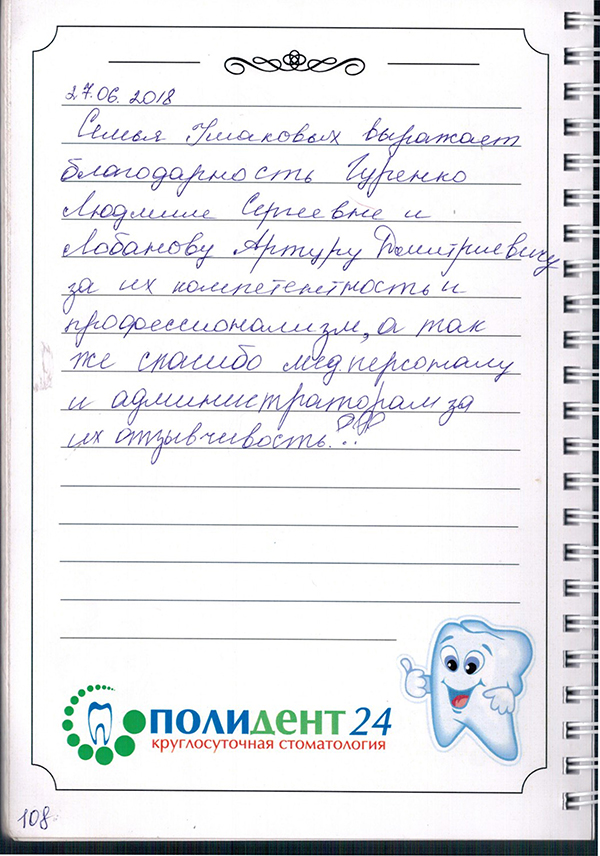 27.06.2018
Семья Ушаковых выражает
благодарность Гуренко
Людмиле Сергеевне и
Лобанову Артуру Дмитриевичу
за их компетентность и
профессионализм, а так
же спасибо медперсоналу
и администраторам за
их отзывчивость!!!
ПОЛИДЕНТ 24
круглосуточная стоматология
108